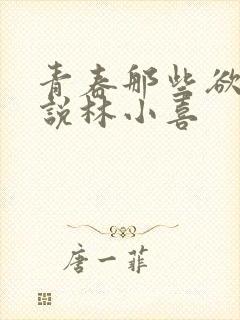 青春那些欲
說林小喜
唐一菲